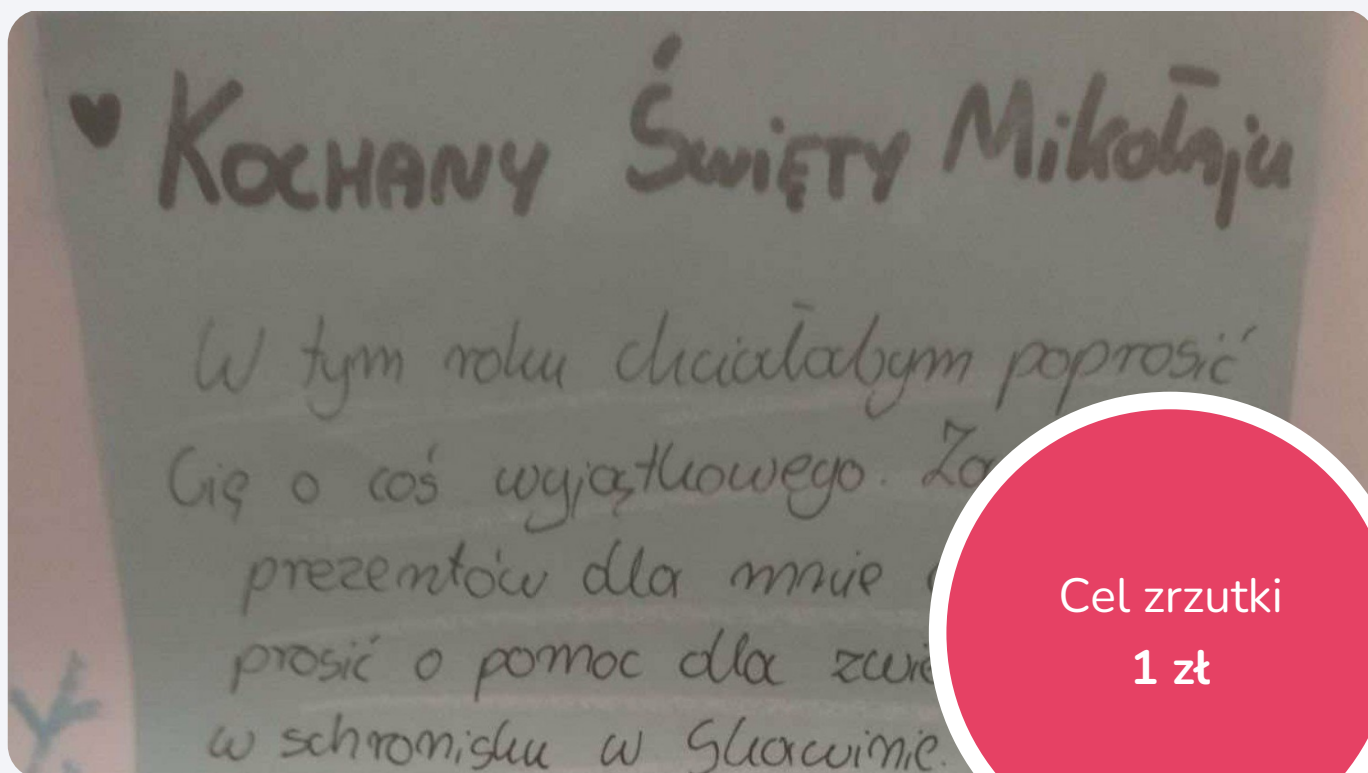 Kochany Święty Mikołaju
W tym roku chciałabym poprosić
Cię o coś wyjątkowego.
prezentów dla mnie
prosić o pomoc dla
w schronisku w Skawinie.
Cel zrzutki
1 zł